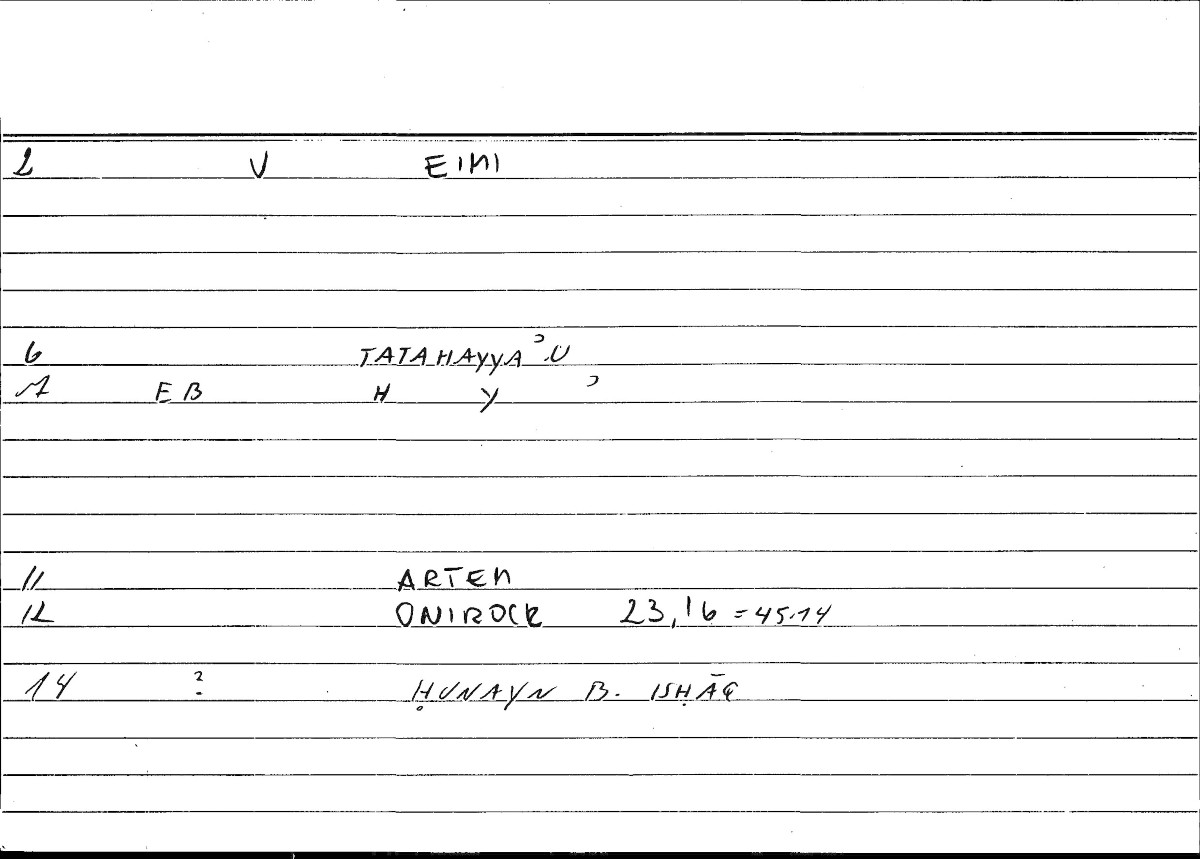 2 V EIMI
6 TATAHAYYAʾ.U
7 EB H Y ʾ
11 ARTEM
12 ONIROCR 23,16 = 45.14
14 ? ḤUNAYN B. ISḤĀQ